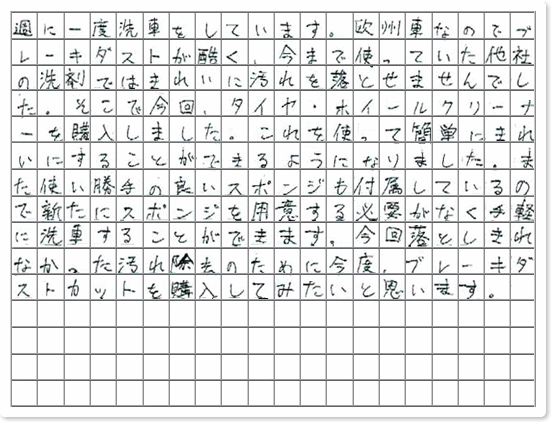 週に一度洗車をしています。欧州車なのでブ
レーキダストが酷く、今まで使っていた他社
の洗剤ではきれいに汚れを落とせませんでし
た。そこで今回、タイヤ・ホイールクリーナ
ーを購入しました。これを使って簡単にきれ
いにすることができるようになりました。ま
た使い勝手の良いスポンジも付属しているの
で新たにスポンジを用意する必要がなく手軽
に洗車することができます。今回落としきれ
なかった汚れ除去のために今度、ブレーキダ
ストカットを購入してみたいと思います。